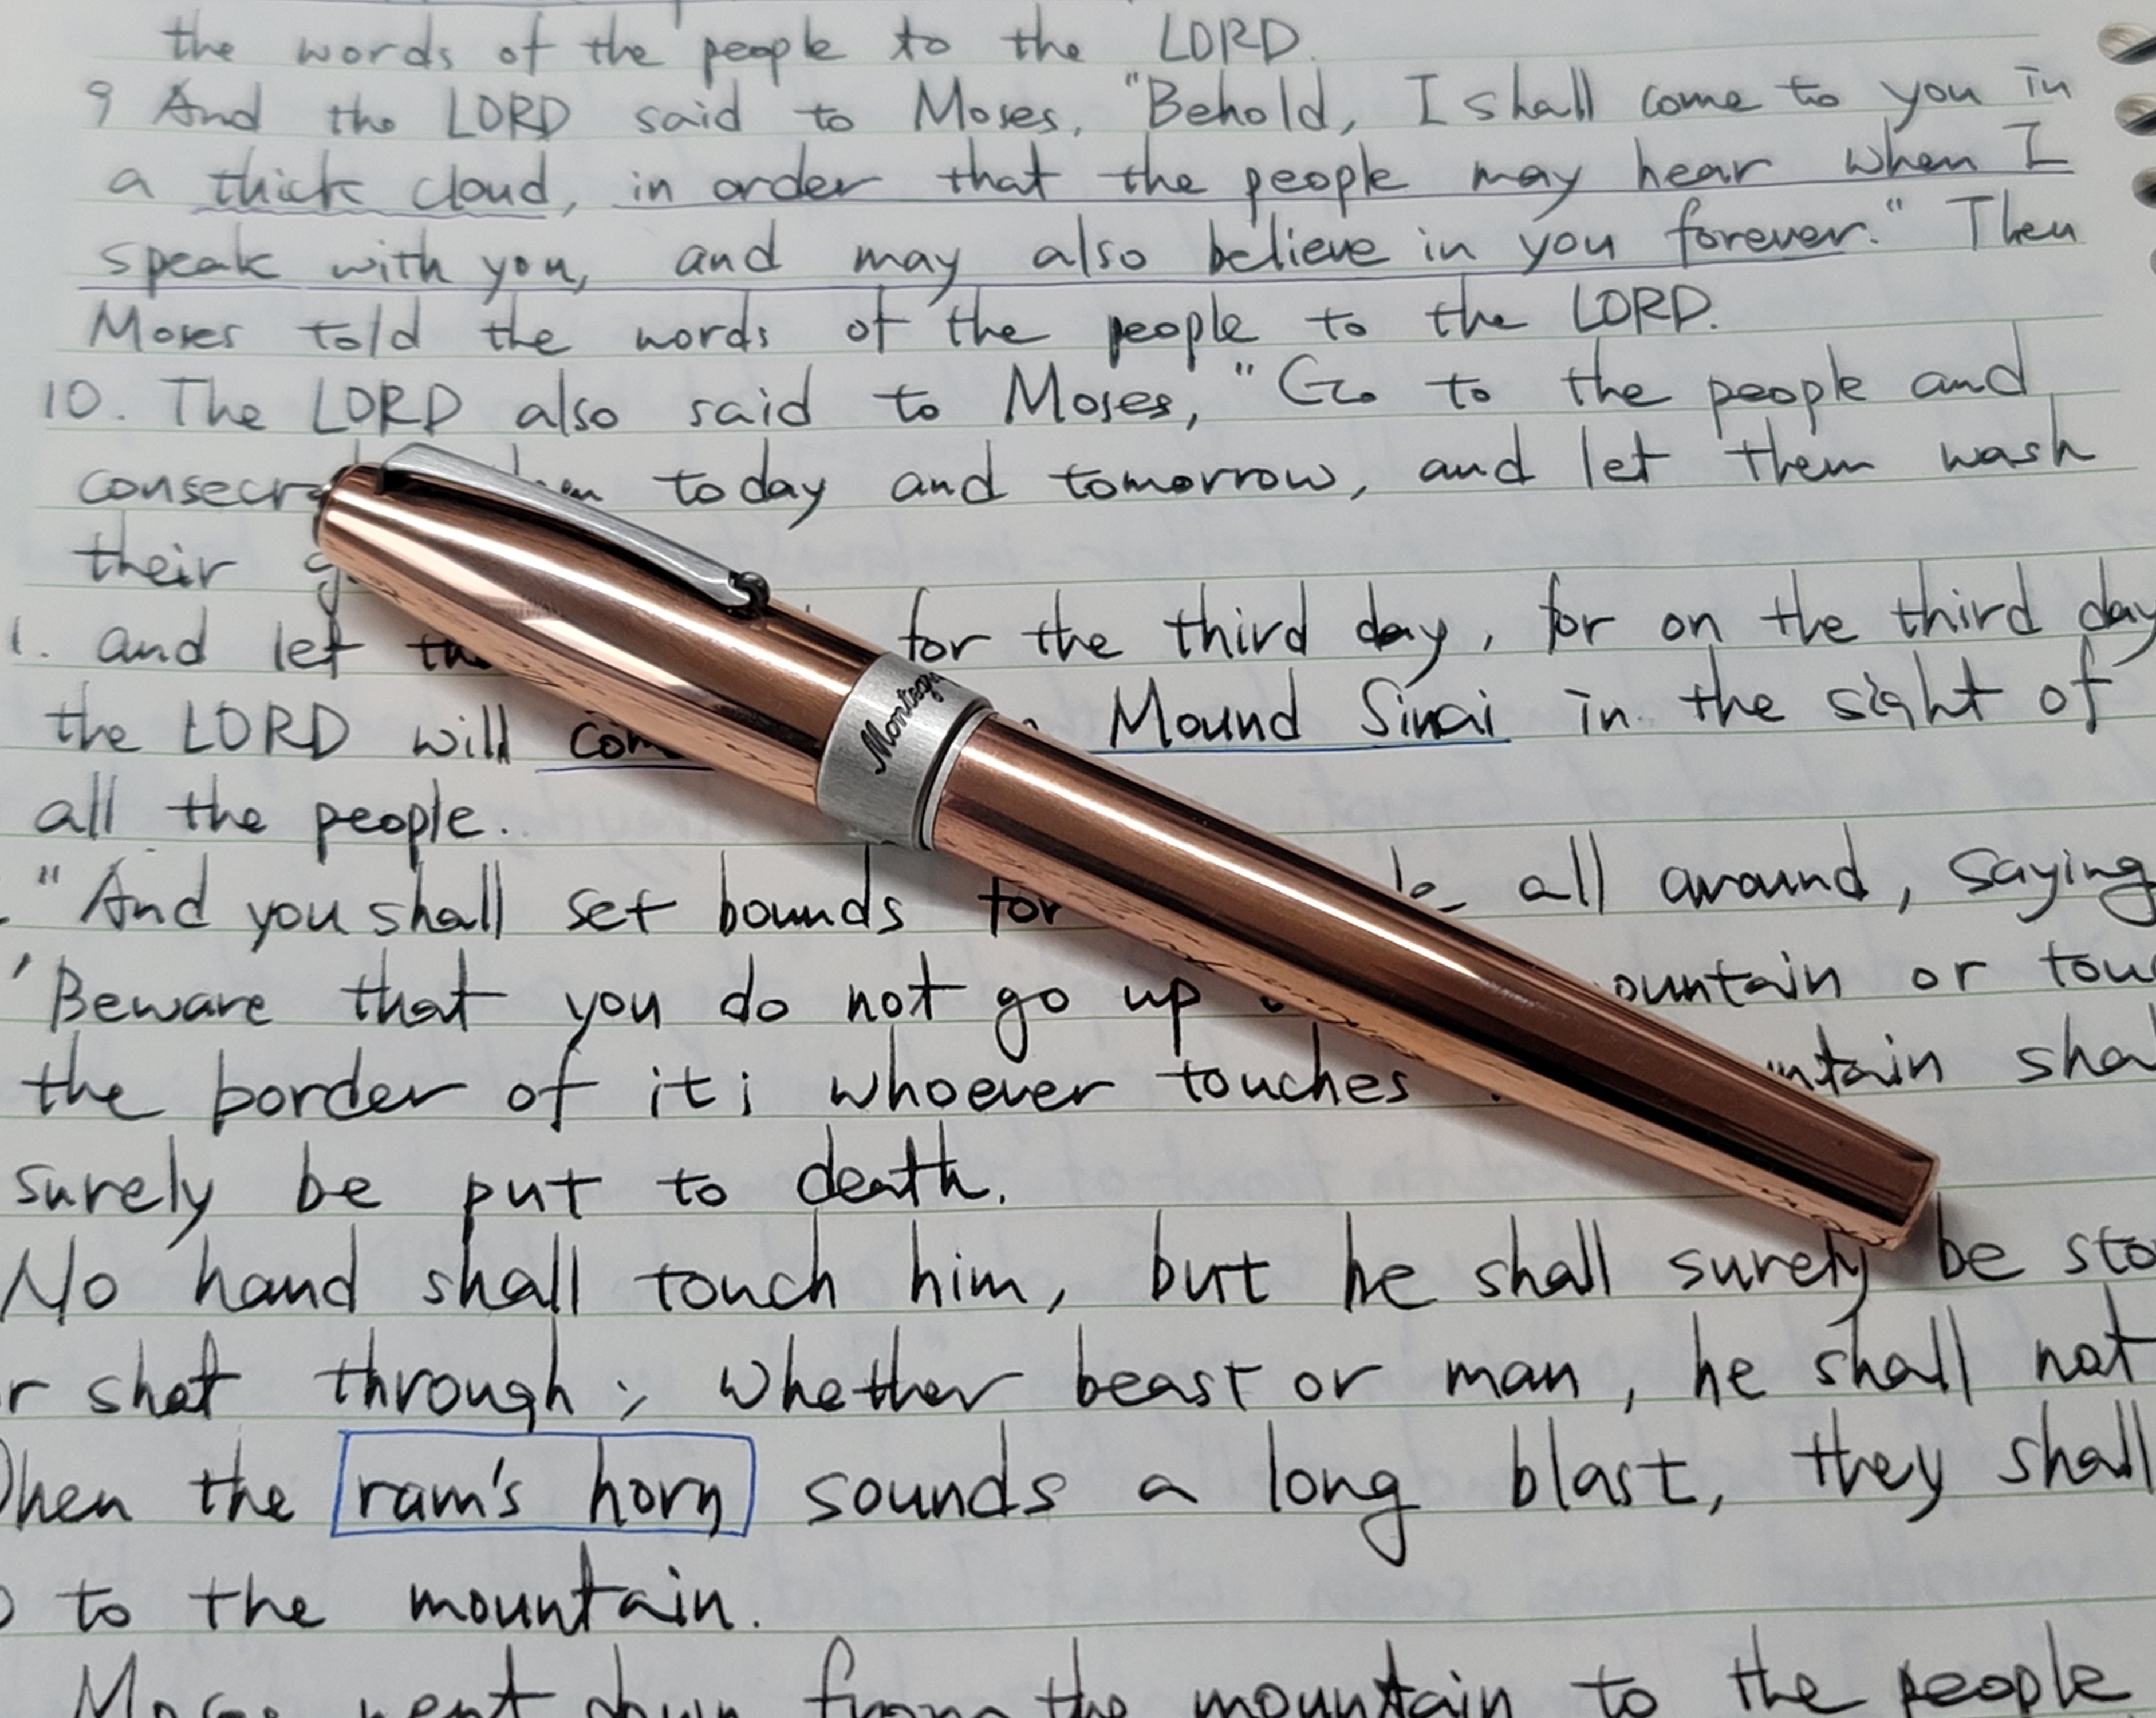 the words of the people to the LORD.
9 And the LORD said to Moses, "Behold, I shall come to you in
a thick cloud, in order that the people may hear when I
speak with you, and may also believe in you forever." Then
Moses told the words of the people to the LORD.
10. The LORD also said to Moses, "Go to the people and
today and tomorrow, and let them wash
their
1. and let for the third day, for on the third day
the LORD will Mound Sinai in the sight of
all the people.
"And you shall set bounds for all around, saying
'Beware that you do not go up or
the border of it; whoever touches
surely be put to death.
No hand shall touch him, but he shall surely be
shot through; whether beast or man, he shall not
the ram's horn sounds a long blast, they shall
to the mountain.
Moses went down from the mountain to the people